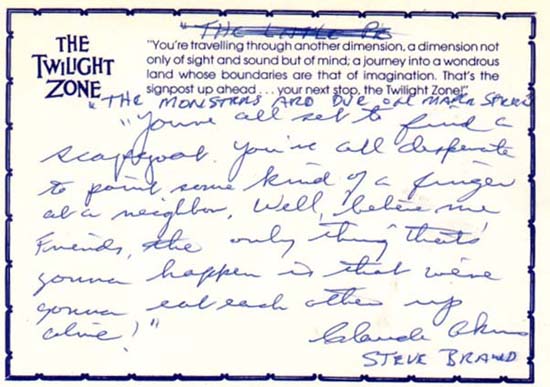 "THE LITTLE PE
THE
TWILIGHT
ZONE
"You're travelling through another dimension, a dimension not
only of sight and sound but of mind; a journey into a wondrous
land whose boundaries are that of imagination. That's the
signpost up ahead . . . your next stop, the Twilight Zone!"
"THE MONSTERS ARE DUE ON MAPLE STREET
"You're all set to find a
scapegoat. You're all desperate
to point some kind of a finger
at a neighbor. Well, believe me
Friends, the only thing that's
gonna happen is that we're
gonna eat each other up
alive!"
Claude Akins
STEVE BRAND